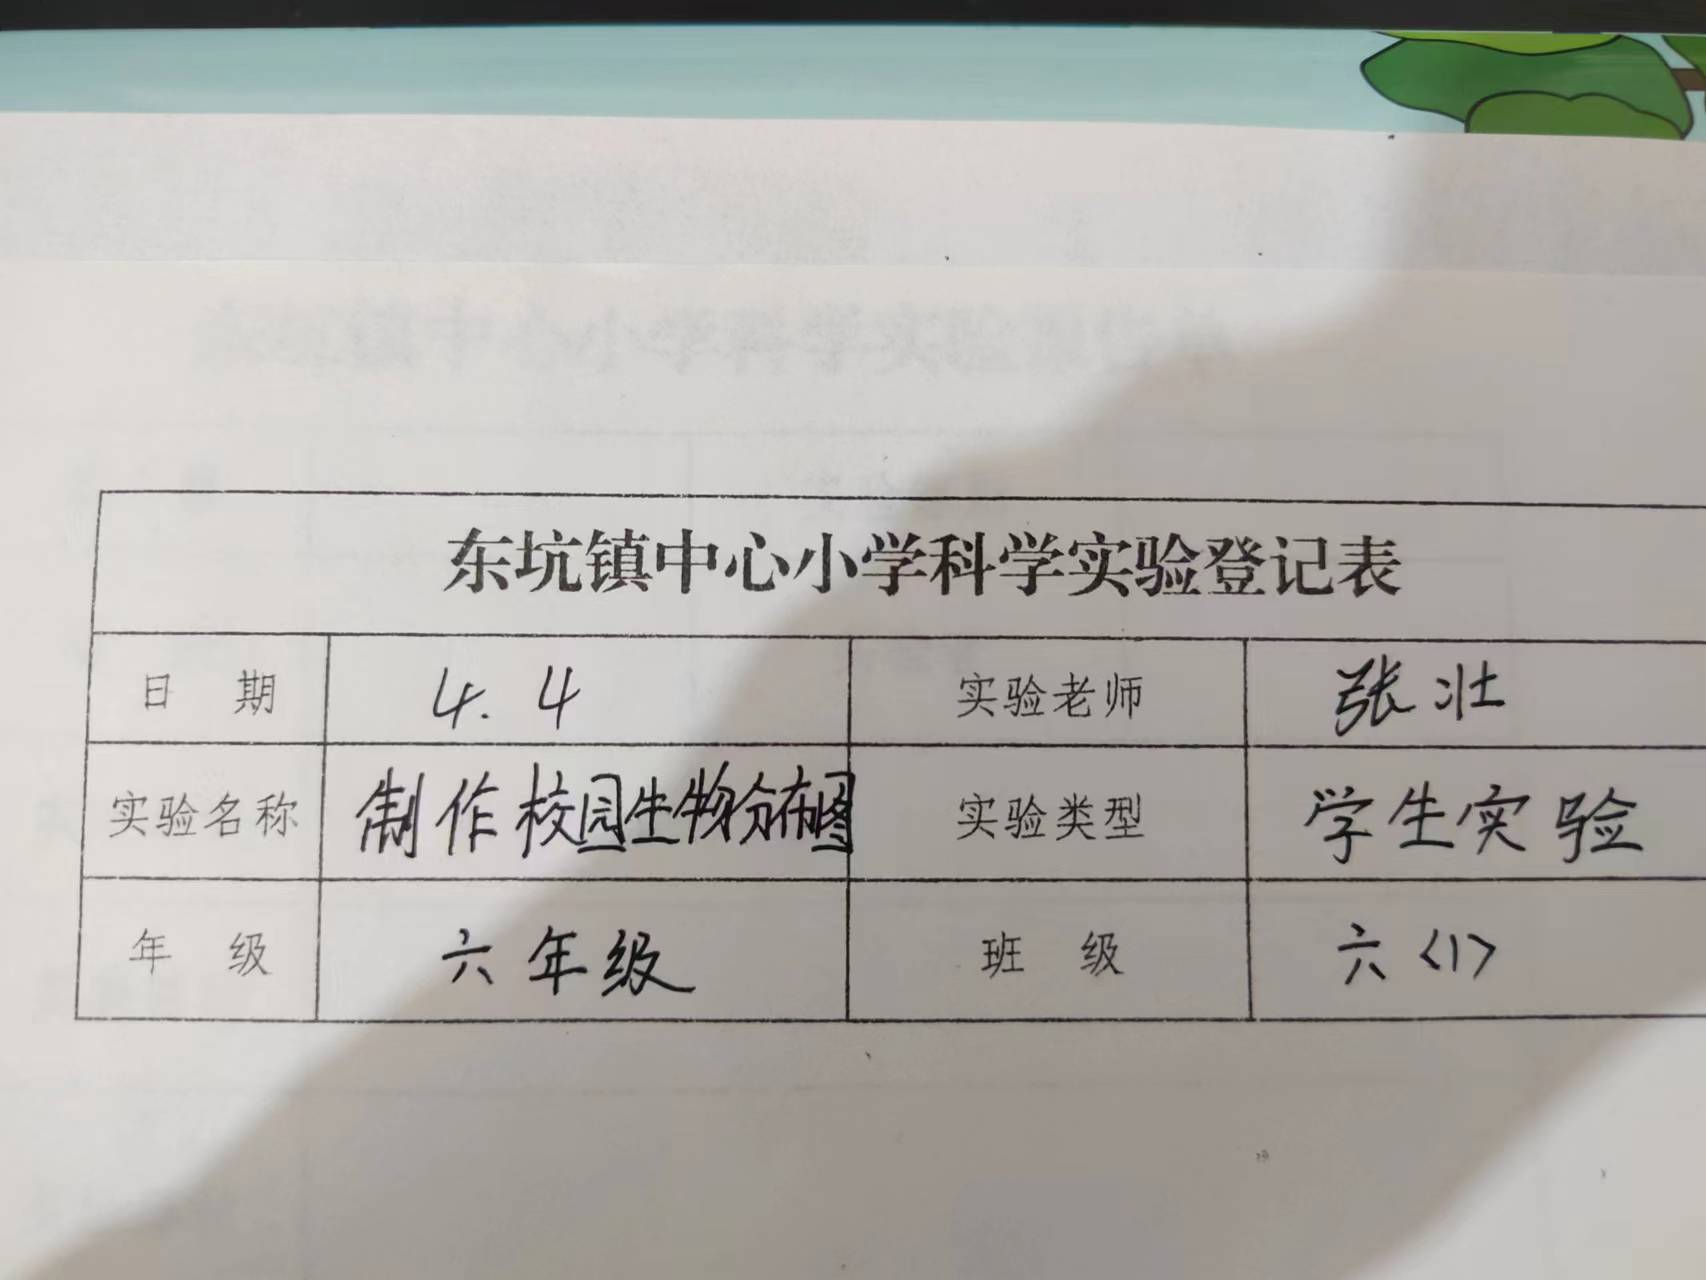 东坑镇中心小学科学实验登记表
日 期 4.4 实验老师 张壮
实验名称 制作校园生物分布图 实验类型 学生实验
年 级 六年级 班 级 六<1>